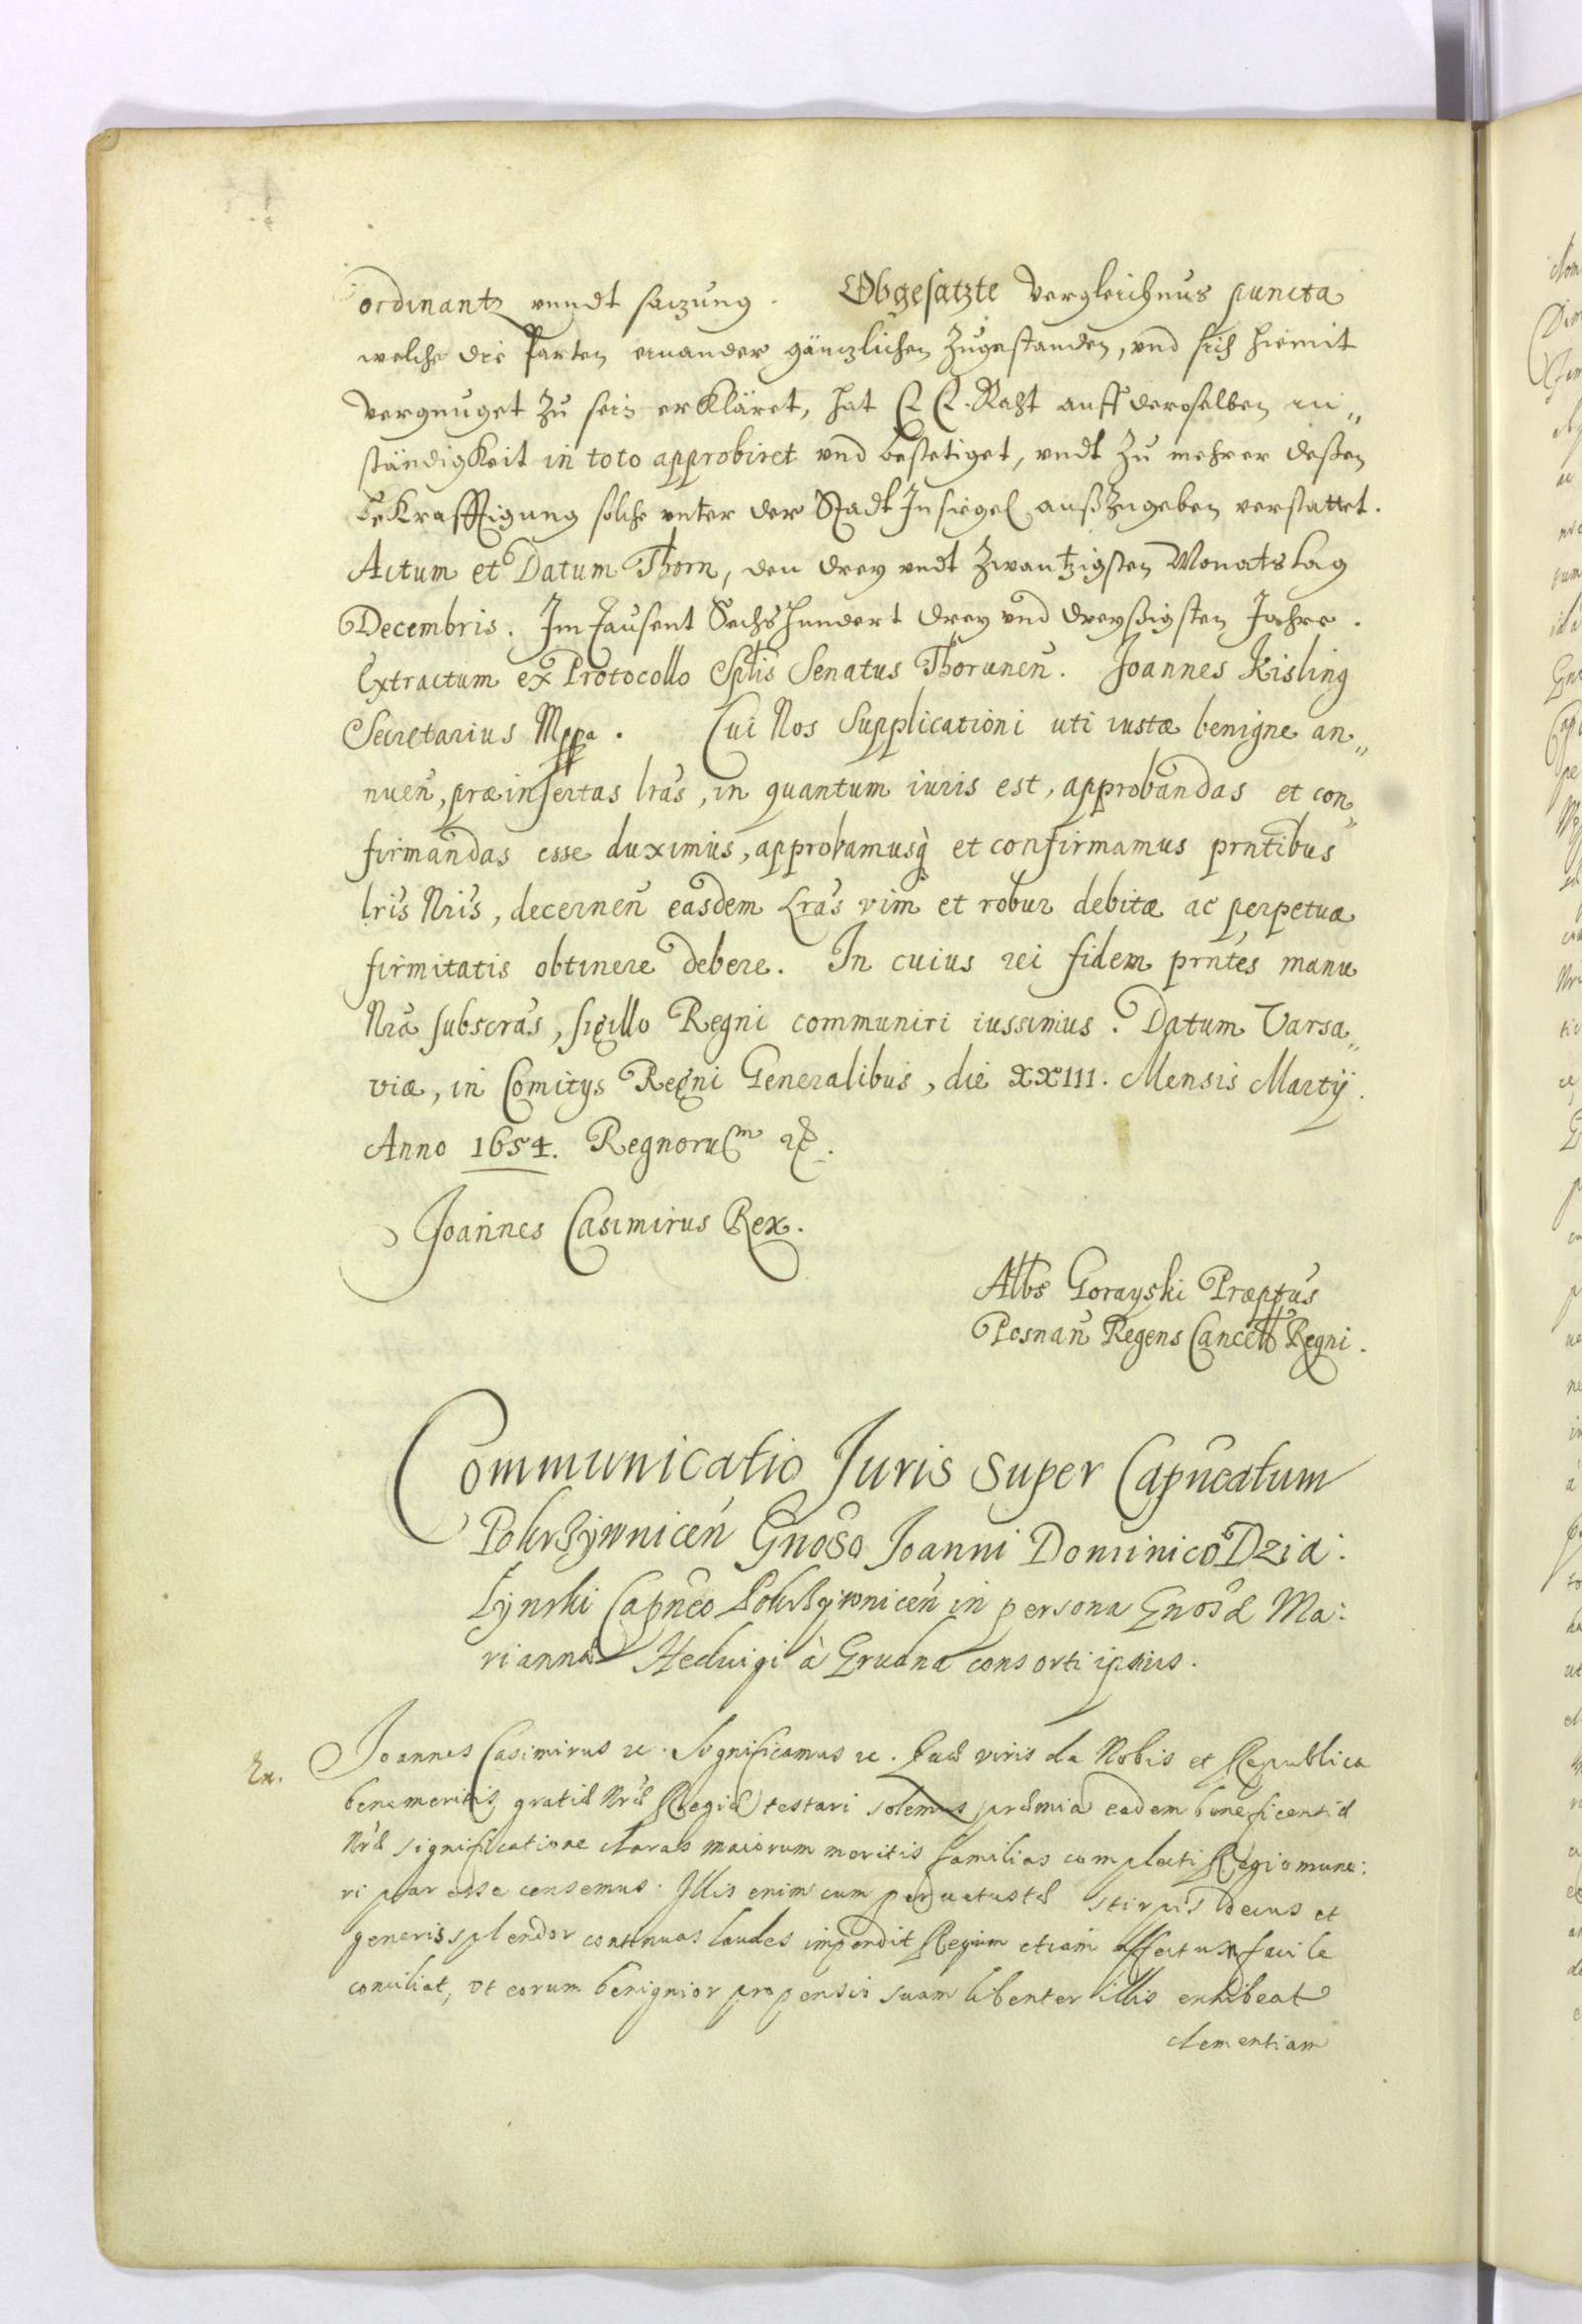 ordinantz vnndt sazung. Obgesatzte vergleichnus puncta
welche die Parten einander gäntzlichen zugestanden, vnd sich hiemit
vergnuget zu sein erkläret, hat E E. Raht auff deroselben in„
ständigkeit in toto approbiret vnd bestetiget, vndt zu mehrer deßen
bekrafftigung solche vnter der Stadt Insiegel außzugeben verstattet.
Actum et Datum Thorn, den drey vndt zwantzigsten Monats tag
Decembris. Im Tausent Sechs hundert drey vnd dreyßigsten Jahre.
Extractum ex Protocollo Splis Senatus Thorunen. Joannes Kisling
Secretarius Mppa. Cui Nos supplicationi uti iustæ benigne an„
nuen, præinsertas lras, in quantum iuris est, approbandas et con„
firmandas esse duximus, approbamusq et confirmamus prntibus
lris Nris, decernen easdem Lras vim et robur debitæ ac perpetuæ
firmitatis obtinere debere. In cuius rei fidem prntes manu
Nra subscras, sigillo Regni communiri iussimus. Datum Varsa„
viæ, in Comitys Regni Generalibus, die XXIII. Mensis Martij.
Anno 1654. Regnorum &c.
Joannes Casimirus Rex.
Albs Gorayski Præptus
Posnan Regens Cancell Regni.
Communicatio Juris super Capneatum
Pokrzywnicen Gnoso Joanni Dominico Dzia:
łynski Capneo Pokrzywnicen in persona Gnosæ Ma:
rianna Hedvigi à Grudna consorti ipsius.
En. Joannes Casimirus &c. Significamus &c. Quæ viris de Nobis et Republica
benemeritis gratiæ Nræ Regiæ testari solemus præmia eadem beneficentiæ
Nræ significatione claras maiorum meritis familias complecti Regio mune:
ri par esse censemus. Illis enim cum pervetustæ stirpis decus et
generis splendor continuas laudes impendit Regium etiam affectum facile
conciliat, vt eorum benignior propensio suam libenter illis exhibeat
clementiam